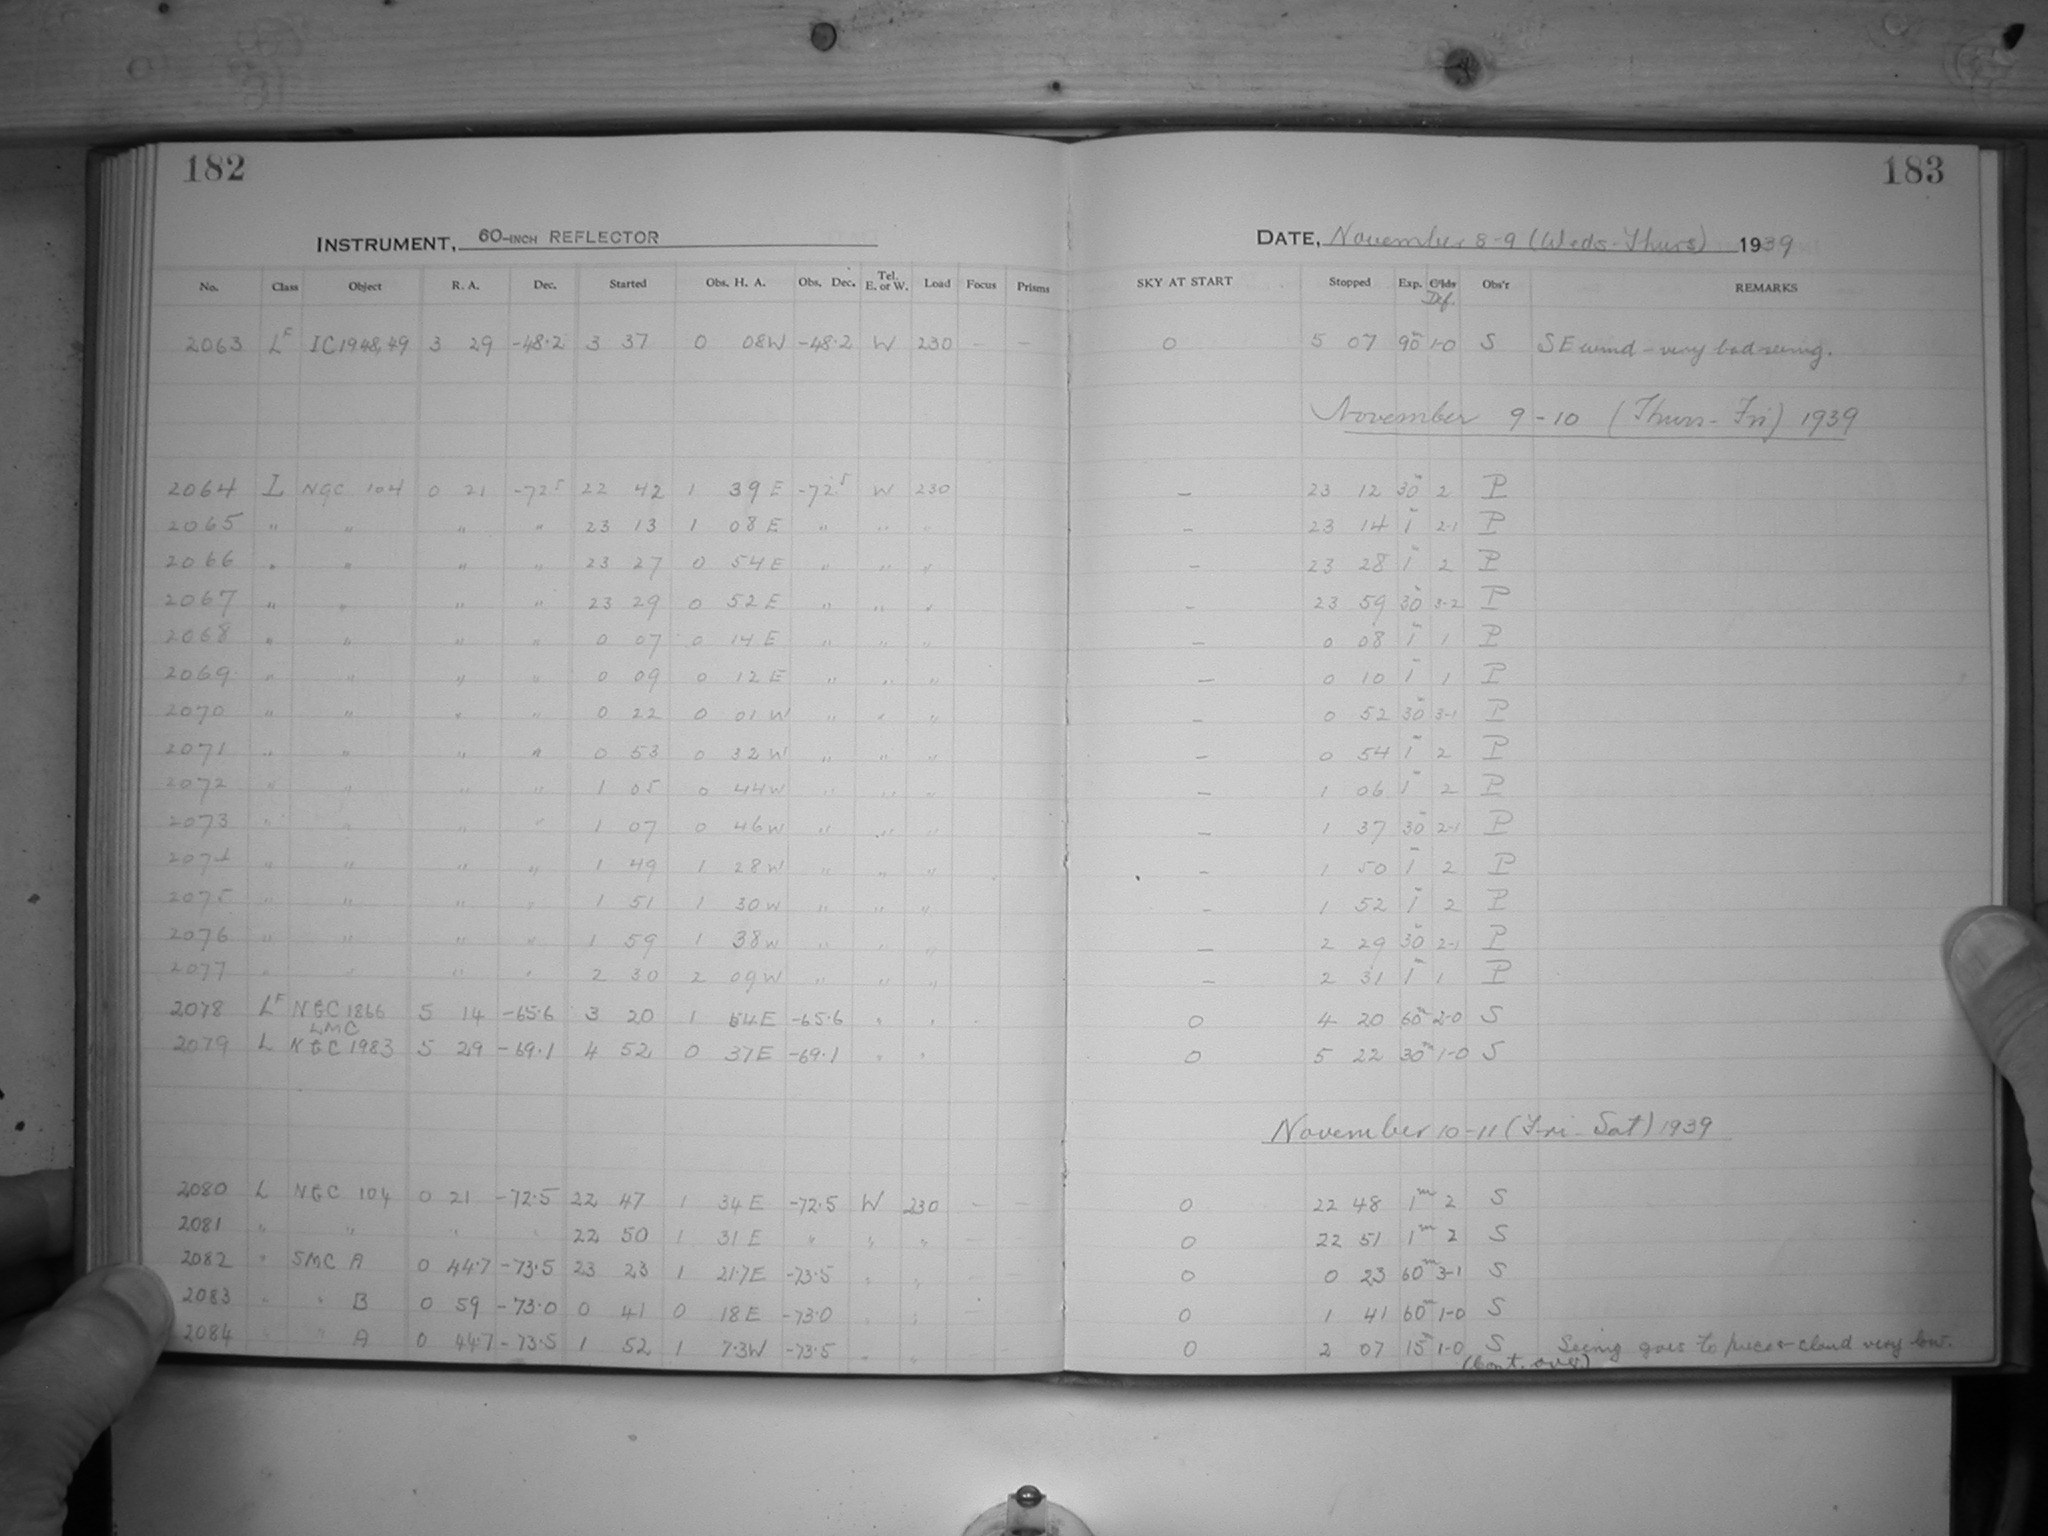 182
183
INSTRUMENT, 60-INCH REFLECTOR
DATE, November 8-9 (Weds-Thurs) 1939
No. Class Object R. A. Dec. Started Obs. H. A. Obs. Dec. Tel. E. or W. Load Focus Prisms SKY AT START Stopped Exp. Def. Obs'r REMARKS
2063 LF IC1948,49 3 29 -48.2 3 37 0 08W -48.2 W 230 - - 0 5 07 90m 1-0 S SE wind - very bad seeing.
November 9-10 (Thurs-Fri) 1939
2064 L NGC 104 0 21 -72.5 22 42 1 39 E -72.5 W 230 - 23 12 30m 2 P
2065 " " " " 23 13 1 08 E " " " - 23 14 1m 2-1 P
2066 " " " " 23 27 0 54 E " " " - 23 28 1m 2 P
2067 " " " " 23 29 0 52 E " " " - 23 59 30m 3-2 P
2068 " " " " 0 07 0 14 E " " " - 0 08 1m 1 P
2069 " " " " 0 09 0 12 E " " " - 0 10 1m 1 P
2070 " " " " 0 22 0 01 W " " " - 0 52 30m 3-1 P
2071 " " " " 0 53 0 32 W " " " - 0 54 1m 2 P
2072 " " " " 1 05 0 44 W " " " - 1 06 1m 2 P
2073 " " " " 1 07 0 46 W " " " - 1 37 30m 2-1 P
2074 " " " " 1 49 1 28 W " " " - 1 50 1m 2 P
2075 " " " " 1 51 1 30 W " " " - 1 52 1m 2 P
2076 " " " " 1 59 1 38 W " " " - 2 29 30m 2-1 P
2077 " " " " 2 30 2 09 W " " " - 2 31 1m 1 P
2078 LF NGC 1866 5 14 -65.6 3 20 1 54 E -65.6 " " 0 4 20 60m 2-0 S
LMC
2079 L NGC 1983 5 29 -69.1 4 52 0 37 E -69.1 " " 0 5 22 30m 1-0 S
November 10-11 (Fri-Sat) 1939
2080 L NGC 104 0 21 -72.5 22 47 1 34 E -72.5 W 230 - - 0 22 48 1m 2 S
2081 " " " " 22 50 1 31 E " " " - 0 22 51 1m 2 S
2082 " SMC A 0 44.7 -73.5 23 23 1 21.7E -73.5 " " - - 0 0 23 60m 3-1 S
2083 " " B 0 59 -73.0 0 41 0 18 E -73.0 " " - 0 1 41 60m 1-0 S
2084 " " A 0 44.7 -73.5 1 52 1 7.3W -73.5 " " 0 2 07 15m 1-0 S Seeing goes to pieces - cloud very low.
(Cont. over)